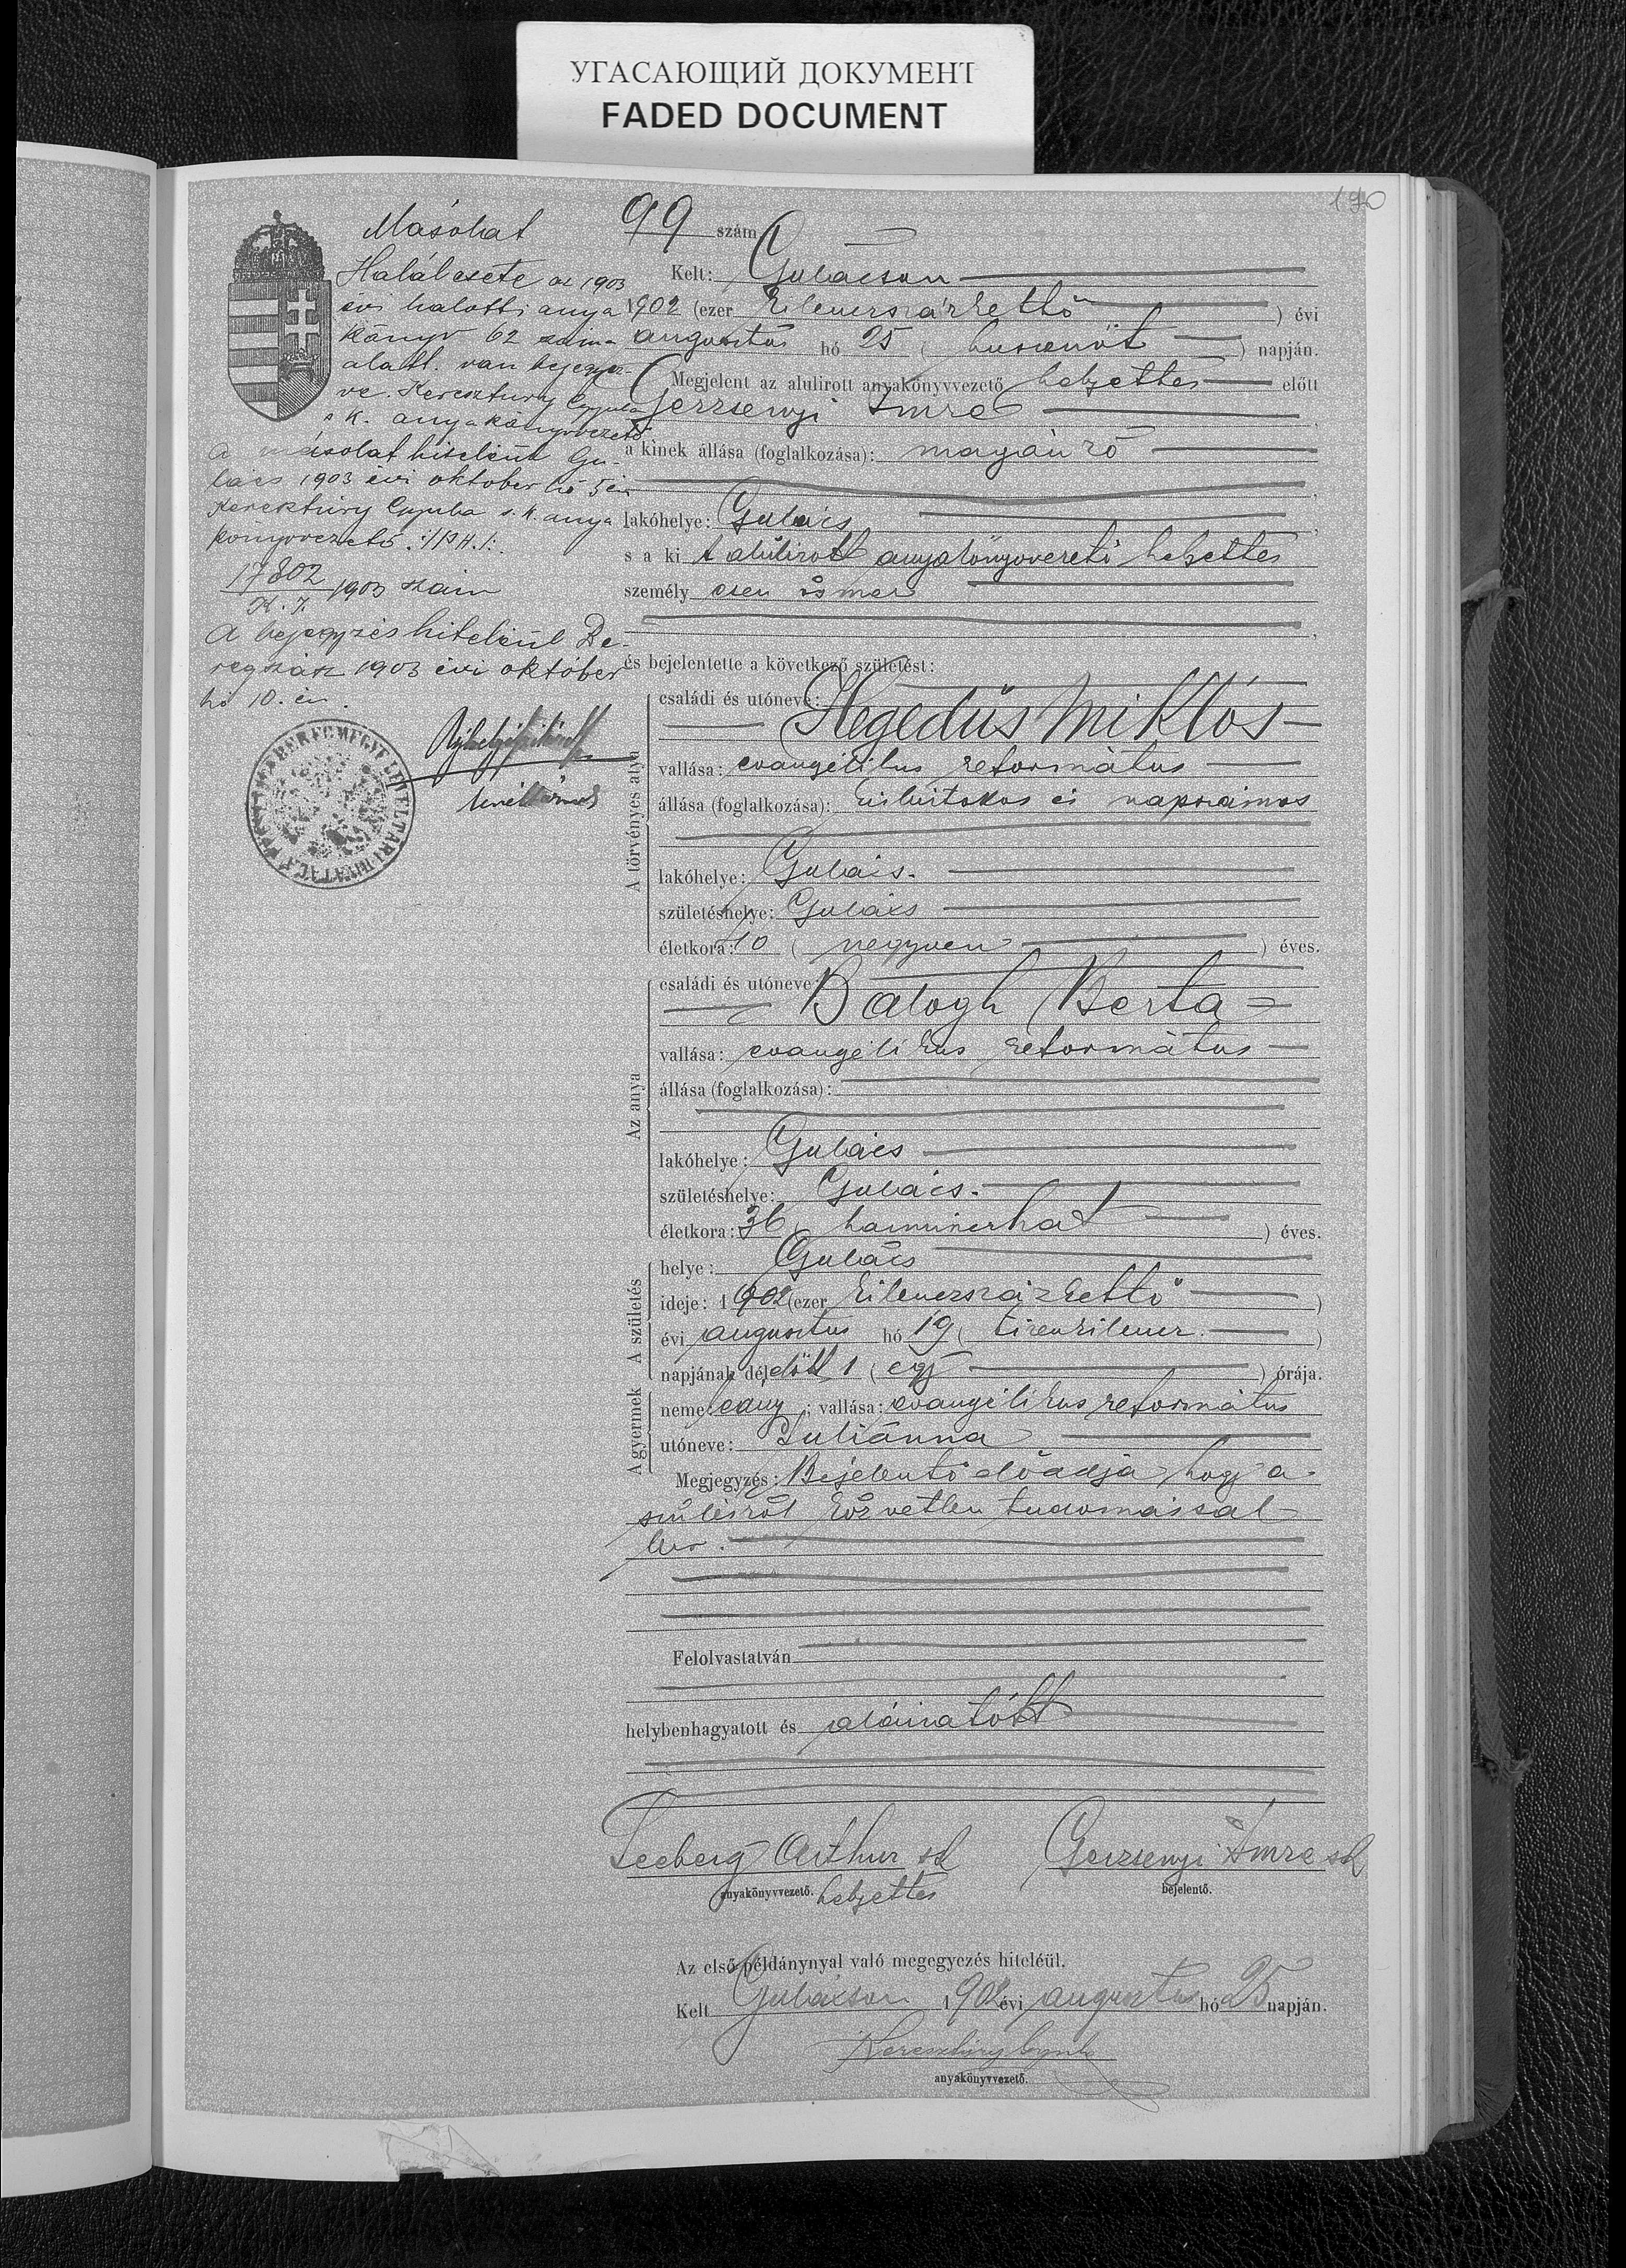 УГАСАЮЩИЙ ДОКУМЕНТ
FADED DOCUMENT
170
Másolat
Halálesete az 1903
évi halotti anya
könyv 62 szám
alatt van bejegyez-
ve. Keresztury Gyula
s. k. anyakönyvvezető
A másolat hiteléül Gu-
lács 1903 évi október hó 5 én
Keresztúry Gyula s. k. anya
könyvvezető. /:P.H.:/
17802
1903 szám
A bejegyzés hiteléül Be-
regszász 1903 évi október
hó 10. én.
99 szám
Kelt: Gulácson
1902 (ezer kilencszázkettő ) évi
augusztus hó 25 ( huszonöt ) napján.
Megjelent az alulirott anyakönyvvezető helyettes előtt
Gerzsenyi Imre
a kinek állása (foglalkozása): magánzó
lakóhelye: Gulács
s a ki t alúlirott anyakönyvvezető helyettes
személyesen ismer
és bejelentette a következő születést:
A törvényes atya
családi és utóneve:
Hegedüs Miklós
vallása: evangélikus református
állása (foglalkozása): kisbirtokos és napszámos
lakóhelye: Gulács.
születéshelye: Gulács
életkora: 40 ( negyven ) éves.
Az anya
családi és utóneve:
Balogh Berta
vallása: evangélikus református
állása (foglalkozása):
lakóhelye: Gulács
születéshelye: Gulács.
életkora: 36 ( harminczhat ) éves.
A születés
helye: Gulács
ideje: 1902 (ezer kilencszázkettő )
évi augusztus hó 19 ( tizenkilencz )
napjának délelőtt 1 ( egy ) órája.
A gyermek
neme: leány; vallása: evangélikus református
utóneve: Juliánna
Megjegyzés: Bejelentő előadja hogy a
szülésről közvetlen tudomással
bir.
Felolvastatván
helybenhagyatott és aláiratott
Seeberg Arthur sk Gerzsenyi Imre sk
anyakönyvvezető. helyettes bejelentő.
Az első példánynyal való megegyezés hiteléül.
Kelt Gulácson 1902 évi augusztus hó 25 napján.
Keresztúry Gyula
anyakönyvvezető.